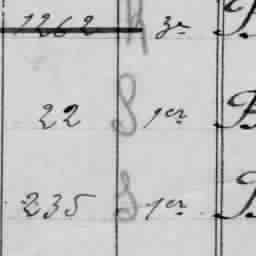 1262 3e B
22 S 1er B
235 S 1er B